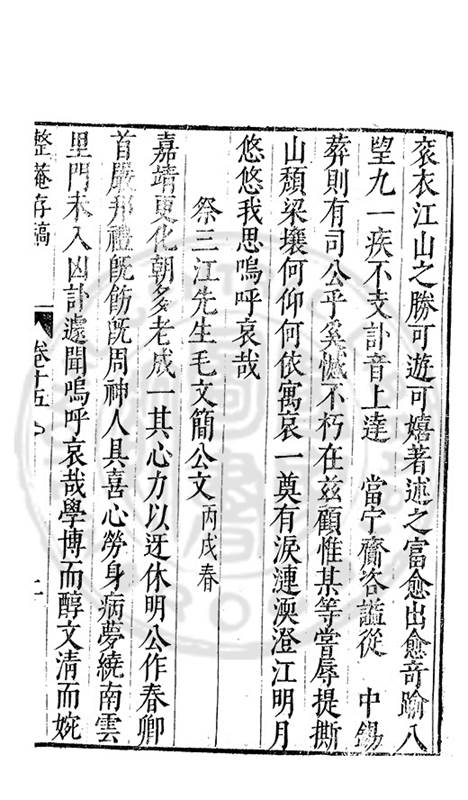 袞衣江山之勝可遊可嬉著述之富愈出愈奇踰八
望九一疾不支訃音上達　當宁賫咨謚從　中錫
葬則有司公乎奚憾不朽在兹顧惟某等嘗辱提撕
山頹梁壞何仰何依寓哀一奠有淚漣洏澄江明月
悠悠我思嗚呼哀哉
祭三江先生毛文簡公文丙戌春
嘉靖更化朝多老成一其心力以迓休明公作春卿
首嚴邦禮既飭既周神人具喜心勞身病夢繞南雲
里門未入凶訃遽聞嗚呼哀哉學博而醇文清而婉
整菴存稿
卷十五